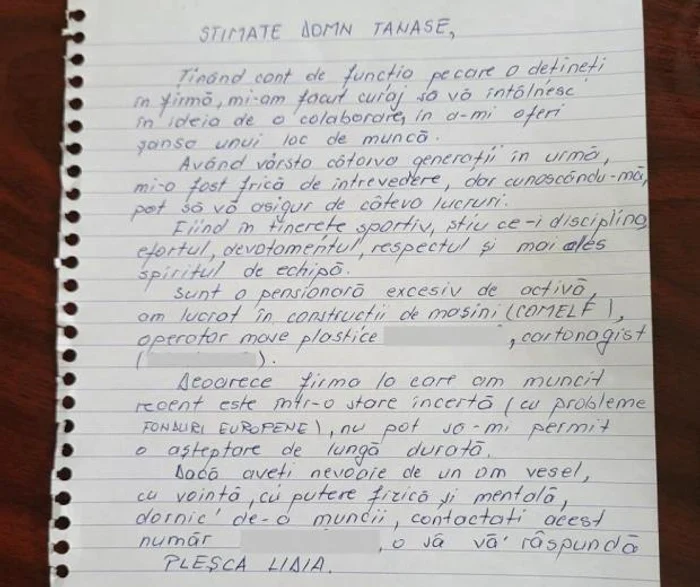 STIMATE DOMN TANASE,
Tinând cont de funcția pe care o dețineți
în firmă, mi-am făcut curaj să vă întâlnesc
în ideia de a colabora, în a-mi oferi
șansa unui loc de muncă.
Având vârsta câtorva generații în urmă,
mi-a fost frică de întrevedere, dar cunoscându-mă,
pot să vă asigur de câteva lucruri.
Fiind în tinerețe sportiv, știu ce-i disciplina,
efortul, devotamentul, respectul și mai ales
spiritul de echipă.
Sunt o pensionară excesiv de activă,
am lucrat în construcții de mașini (COMELF),
operator mase plastice , cartonagist
( ).
Deoarece firma la care am muncit
recent este într-o stare incertă (cu probleme
FONDURI EUROPENE), nu pot să-mi permit
o așteptare de lungă durată.
Dacă aveți nevoaie de un om vesel,
cu voință, cu putere fizică și mentală,
dornic de-a muncii, contactati acest
număr , o să vă răspundă
PLEȘCA LIDIA.